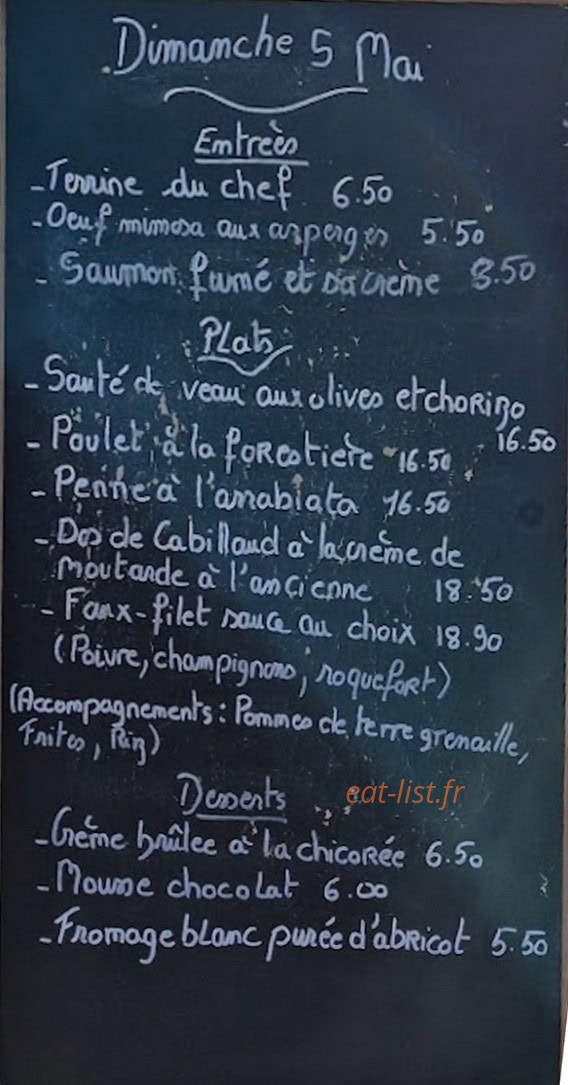 Dimanche 5 Mai
Entrées
- Terrine du chef 6.50
- Oeuf mimosa aux asperges 5.50
- Saumon fumé et sa crème 8.50
Plats
- Sauté de veau aux olives et choRizo
16.50
- Poulet à la forestière 16.50
- Penne à l'arrabiata 16.50
- Dos de Cabillaud à la crème de
moutarde à l'ancienne 18.50
- Faux-filet sauce au choix 18.90
(Poivre, champignons, roquefort)
(Accompagnements : Pommes de terre grenaille,
Frites, Riz)
Desserts
eat-list.fr
- Crème brûlee à la chicorée 6.50
- Mousse chocolat 6.00
- Fromage blanc purée d'abricot 5.50